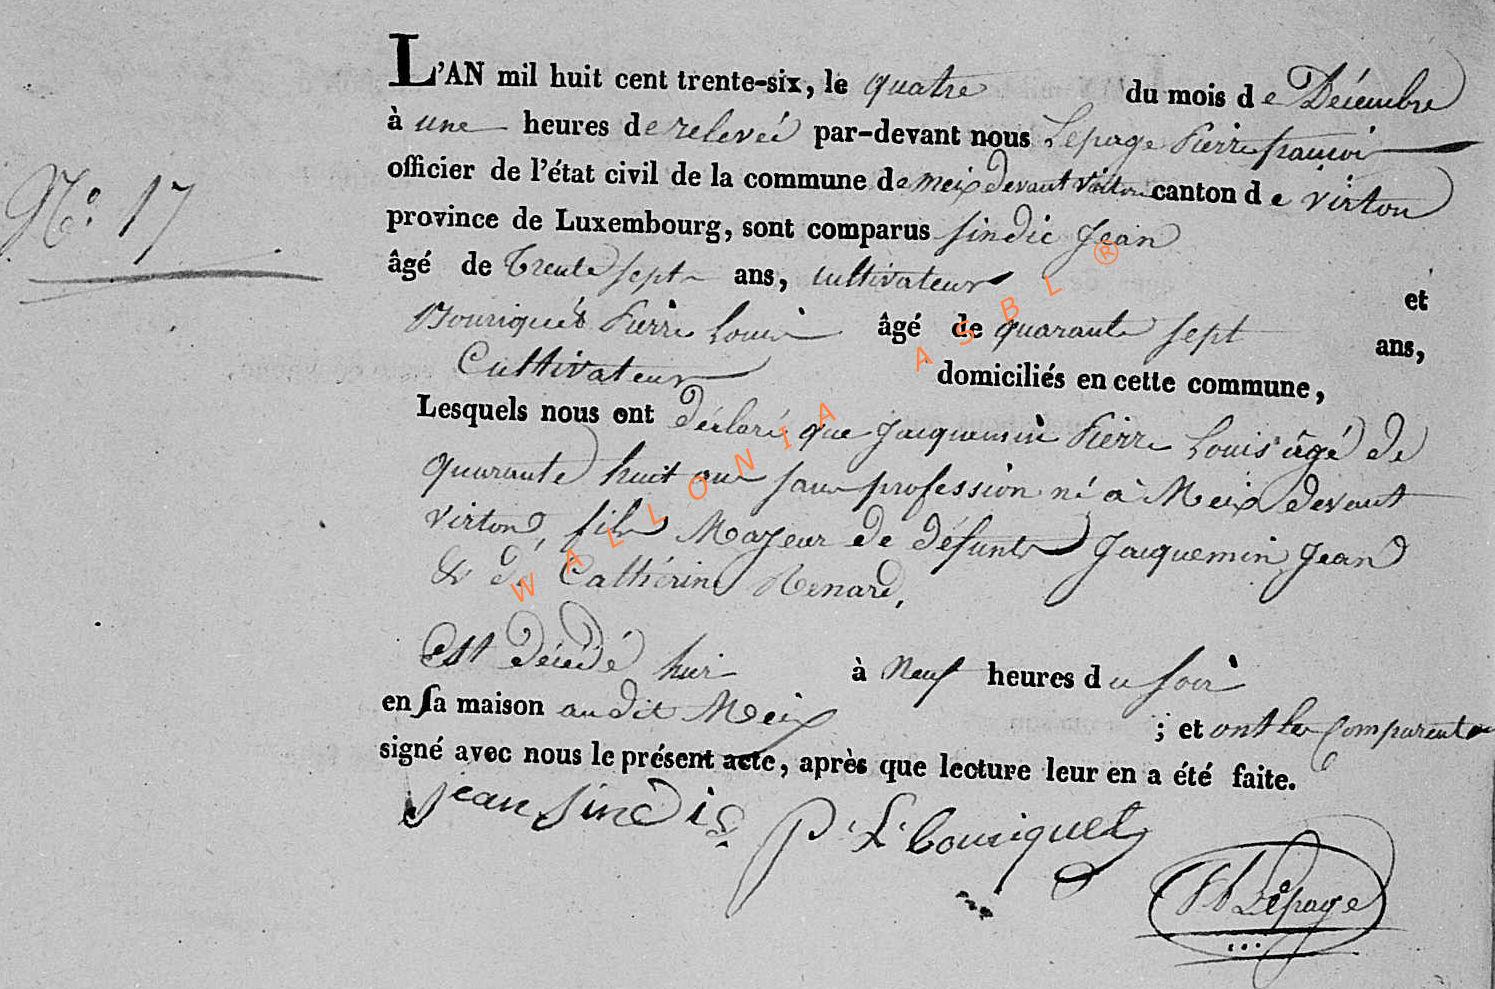 N.° 17
L'AN mil huit cent trente-six, le quatre du mois de Décembre
à une heures de relevée par-devant nous Lepage Pierre françois
officier de l'état civil de la commune de Meix devant Virton canton de Virton
province de Luxembourg, sont comparus Sindic Jean
âgé de Trente sept ans, cultivateur et
Bouriquet Pierre Louis âgé de quarante sept ans,
Cultivateur domiciliés en cette commune,
Lesquels nous ont déclaré que Jacquemin Pierre Louis âgé de
quarante huit ans sans profession né à Meix devant
virton, fils Majeur de défunts Jacquemin Jean
& de Cathérine Renard,
est décédé hier à Neuf heures du soir
en sa maison audit Meix ; et ont les Comparents
signé avec nous le présent acte, après que lecture leur en a été faite.
Jean Sindic P. L. Bouriquet
Lepage
WALLONIA ASBL ®